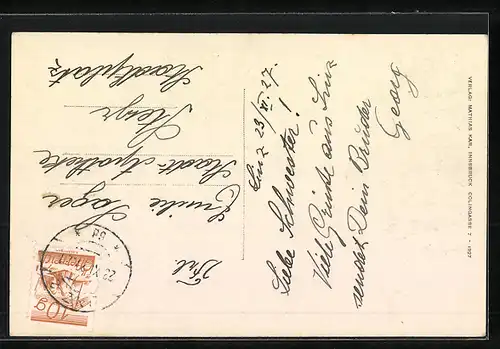 Linz 23/VI. 27.
Liebe Schwester!
Viele Grüße aus Linz
sendet Dein Bruder
Georg
Frl.
Emilie
Sager
Stadt-Apotheke
Steyr
Stadtplatz
10g
VERLAG: MATHIAS KAR, INNSBRUCK, COLINGASSE 7 - 1927